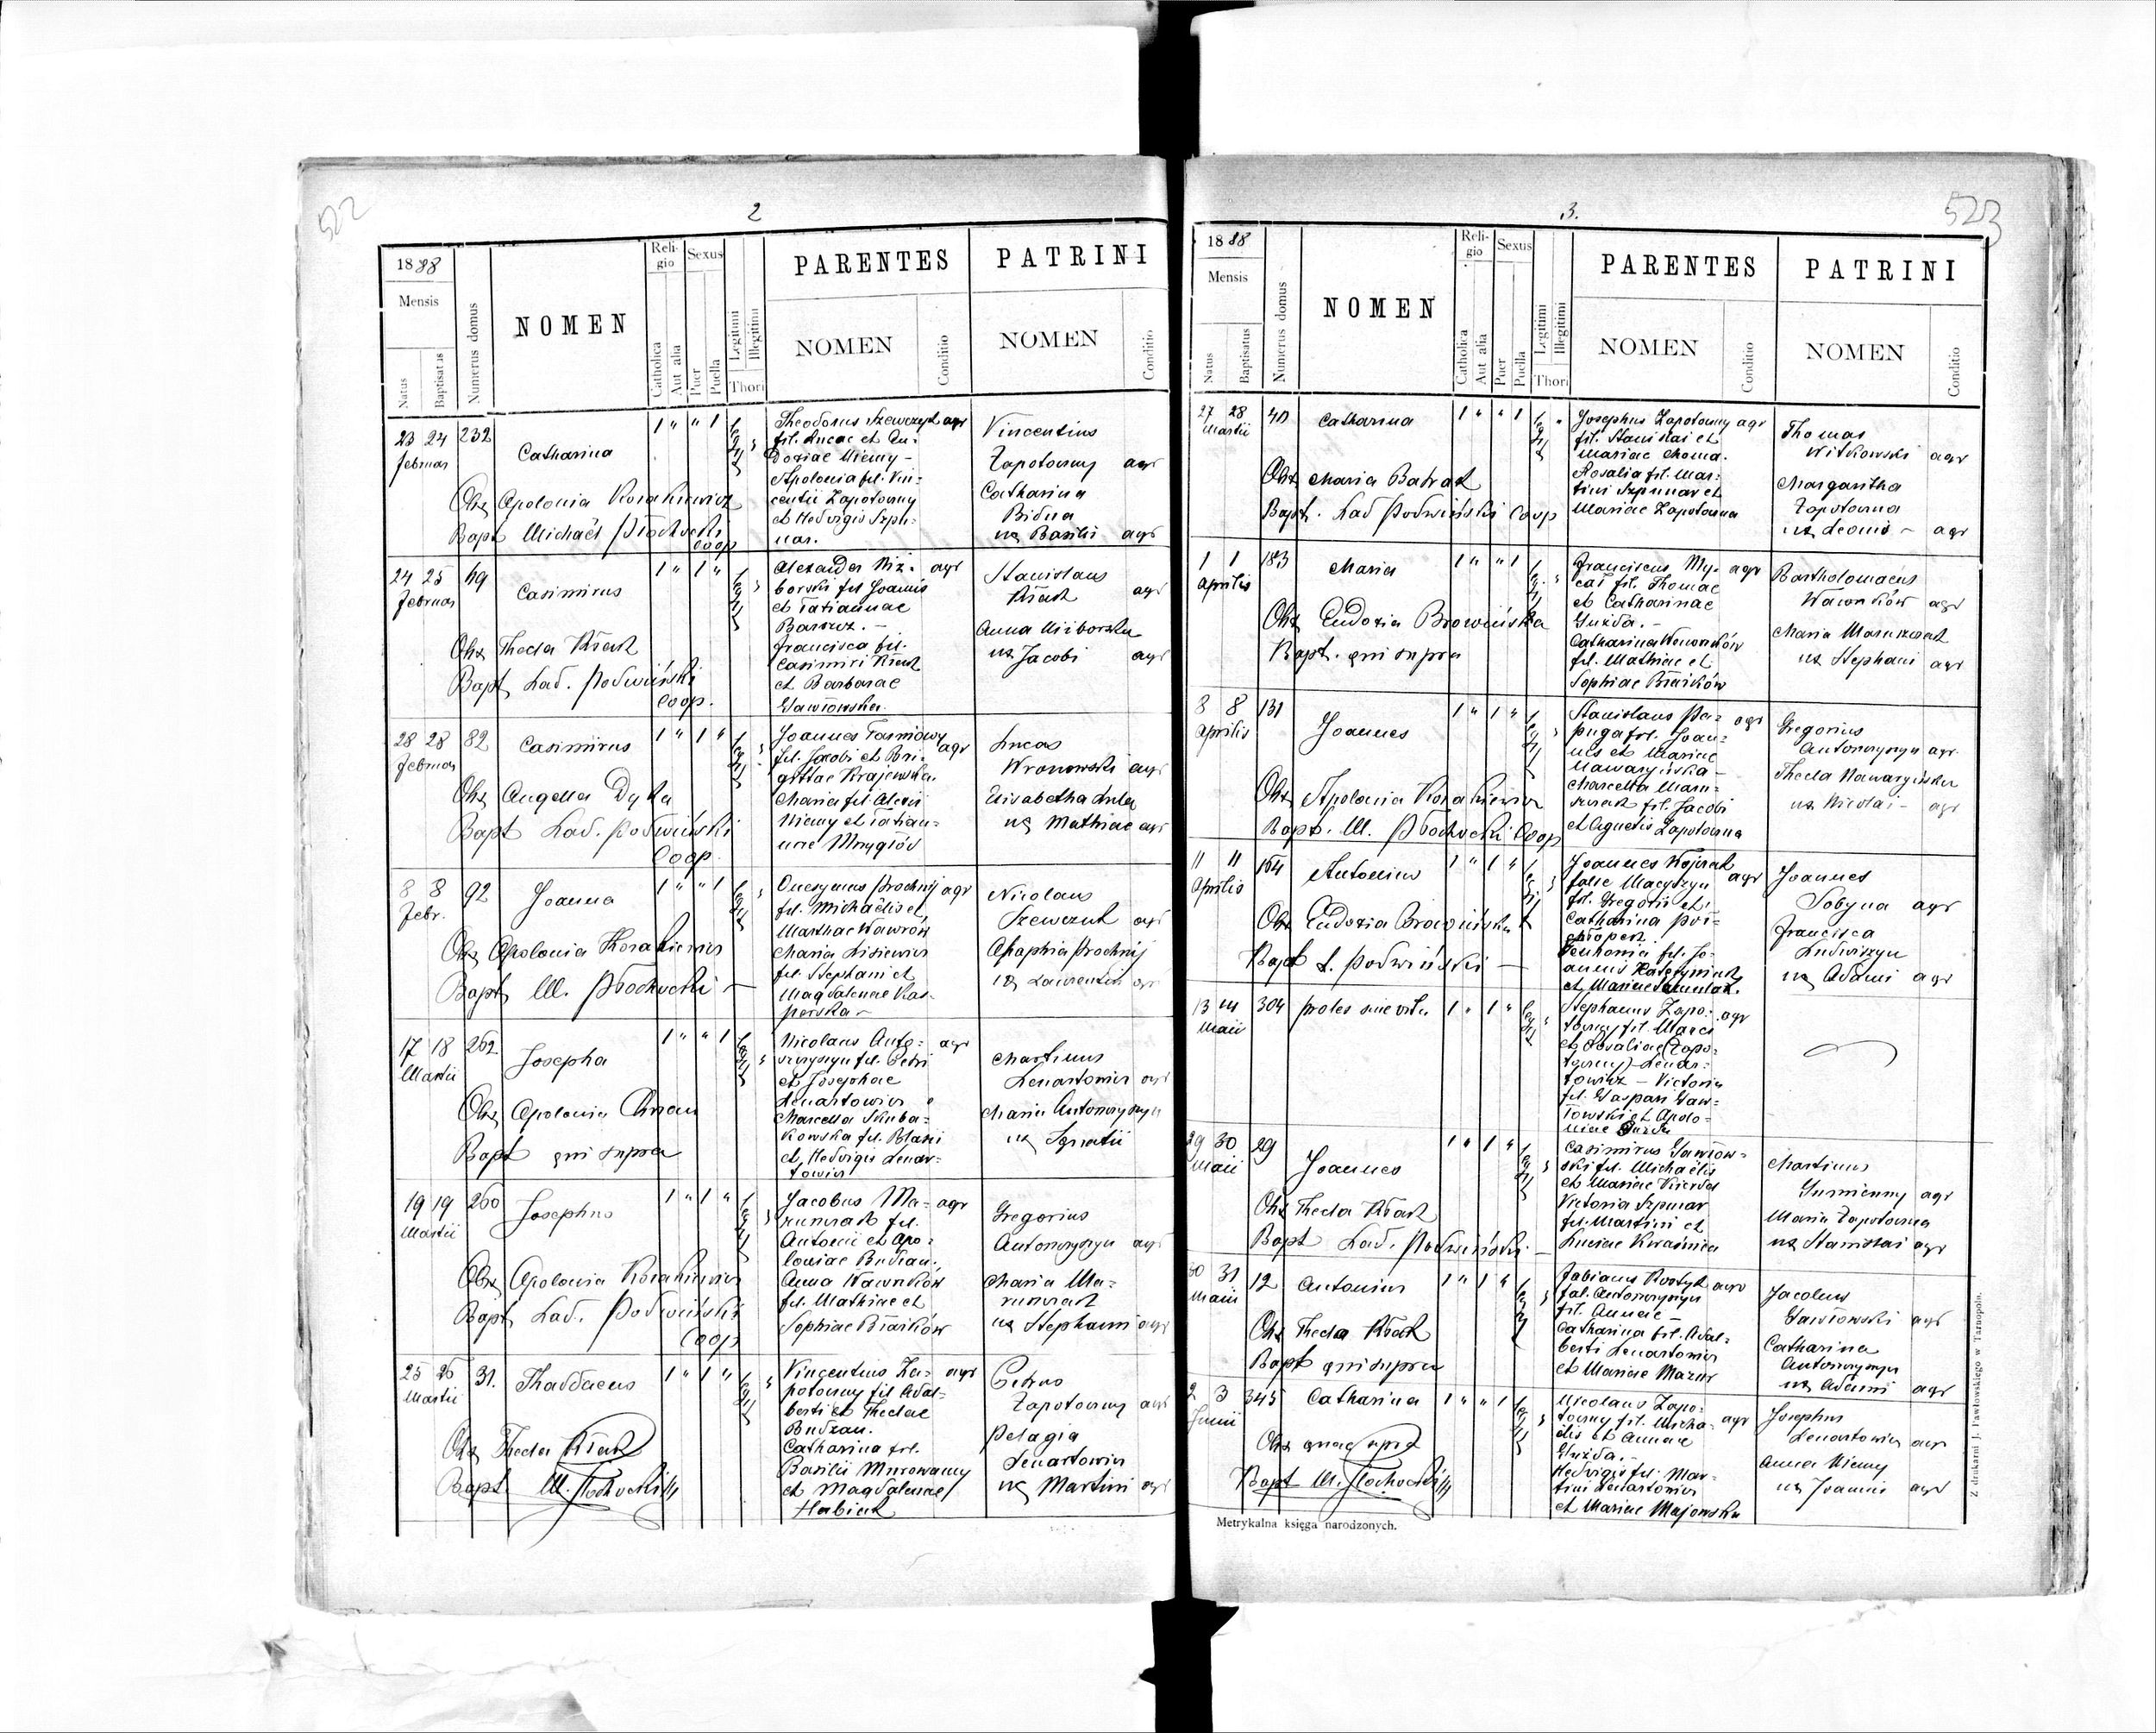 522
2
1888
Mensis
Natus
Baptisatus
Numerus domus
NOMEN
Religio
Catholica
Aut alia
Sexus
Puer
Puella
Legitimi
Illegitimi
Thori
PARENTES
NOMEN
Conditio
PATRINI
NOMEN
Conditio
23 24 232
Februar
Catharina
1 " " 1
Obs Apolonia Korakiewicz
Bapt Michaël Płochocki
Coop
Theodorus Szewczyk agr
fil. Lucae et Eu-
doxiae Niemy -
Apolonia fil. Vin-
centii Zapotoczny
et Hedvigis Szpu-
nar.
Vincentius
Zapotoczny agr
Catharina
Bidna
ux Basilii agr
24 25 49
Februar
Casimirus
1 " 1 "
Obs Thecla Kłak
Bapt Lad. Podwiński
Coop.
Alexander Niż- agr
borski fil Joannis
et Tatiannae
Barszcz. -
Francisca fil.
Casimiri Kłak
et Barbarae
Gawłowska.
Stanislaus
Kłak agr
Anna Niżborska
ux Jacobi agr
28 28 82
Februar
Casimirus
1 " 1 "
Obs Angella Dyka
Bapt Lad. Podwiński
Coop.
Joannes Tarnowy
fil. Jacobi et Bri- agr
gittae Krajewska.
Maria fil. Alexii
Niemy et Tatian-
nae Mrygłód
Lucas
Wronowski agr
Elisabetha
ux Mathiae agr
8 8 92
Febr.
Joanna
1 " " 1
Obs Apolonia Korakiewicz
Bapt M. Płochocki -
Onesymus Prochnij agr
fil. Michaëlis et
Marthae Wawrów
Maria Lisiewicz
fil. Stephani et
Magdalenae Kas-
perska -
Nicolaus
Szewczuk agr
Agaphia Prochnij
ux Laurentii agr
17 18 262
Martii
Josepha
1 " " 1
Obs Apolonia
Bapt qui supra
Nicolaus Anto- agr
szczyszyn fil. Petri
et Josephae
Lenartowicz
Marcella Skuba-
kowska fil. Blasii
et Hedvigis Lenar-
towicz
Martinus
Lenartowicz agr
Maria Antoszczyszyn
ux Ignatii
19 19 260
Martii
Josephus
1 " 1 "
Obs Apolonia Korakiewicz
Bapt Lad. Podwiński
Coop
Jacobus Ma- agr
runczak fil.
Antonii et Apo-
loniae Budzan.
Anna Wawrików
fil. Mathiae et
Sophiae Braików
Gregorius
Antoszczyszyn agr
Maria Ma-
runczak
ux Stephani agr
25 26 31.
Martii
Thaddaeus
1 " 1 "
Obs Thecla Kłak
Bapt M. Płochocki
Vincentius Za- agr
potoczny fil Adal-
berti et Theclae
Budzan.
Catharina fil.
Basilii Murowany
et Magdalenae
Habiak
Petrus
Zapotoczny agr
Pelagia
Lenartowicz
ux Martini agr
523
3.
1888
Mensis
Natus
Baptisatus
Numerus domus
NOMEN
Religio
Catholica
Aut alia
Sexus
Puer
Puella
Legitimi
Illegitimi
Thori
PARENTES
NOMEN
Conditio
PATRINI
NOMEN
Conditio
27 28 40
Martii
Catharina
1 " " 1
Obs Maria Babrak
Bapt. Lad Podwiński Coop
Josephus Zapotoczny agr
fil. Stanislai et
Mariae Choma.
Rosalia fil. Mar-
tini Szpunar et
Mariae Zapotoczna
Thomas
Witkowski agr
Margaritha
Zapotoczna
ux Leonis - agr
1 1 183
Aprilis
Maria
1 " " 1
Obs Eudoxia Browińska
Bapt. qui supra
Franciscus My- agr
cał fil. Thomae
et Catharinae
Gużda. -
Catharina Wawrików
fil. Mathiae et
Sophiae Braików
Bartholomaeus
Wawrików agr
Maria Marunczak
ux Stephani agr
8 8 131
Aprilis
Joannes
1 " 1 "
Obs Apolonia Korakiewicz
Bapt. M. Płochocki Coop
Stanislaus Pa- agr
puga fil. Joan-
nis et Mariae
Nawaryńska -
Marcella Maru-
szczak fil. Jacobi
et Agnetis Zapotoczna
Gregorius
Antoszczyszyn agr.
Thecla Nawaryńska
ux Nicolai - agr
11 11 164
Aprilis
Antonius
1 " 1 "
Obs Eudoxia Browińska
Bapt L. Podwiński -
Joannes Wojczak
false Macyszyn agr
fil. Gregorii et
Catharina Poł-
chłopek.
fil. Jo-
annis
et Mariae
Joannes
Sobyna agr
Francisca
Ludwiszyn
ux Adami agr
13 14 304
Maii
proles sine vita
1 " 1 "
Stephanus Zapo- agr
toczny fil. Marci
et Rosaliae (Zapo-
toczny) Lenar-
towicz - Victoria
fil. Gaspari Gaw-
łowski et Apolo-
niae Gużda
29 30 29
Maii
Joannes
1 " 1 "
Obs Thecla Kłak
Bapt Lad. Podwiński -
Casimirus Gawłow-
ski fil. Michaëlis
et Mariae
Victoria Szpunar
fil. Martini et
Luciae Kwaśnica
Martinus
Gumienny agr
Maria Zapotoczna
ux Stanislai agr
30 31 12
Maii
Antonius
1 " 1 "
Obs Thecla Kłak
Bapt qui supra
Fabianus Kostyk agr
fal. Antoszczyszyn
fil. Annae -
Catharina fil. Adal-
berti Lenartowicz
et Mariae Mazur
Jacobus
Gawłowski agr
Catharina
Antoszczyszyn
ux Adami agr
2 3 345
Junii
Catharina
1 " " 1
Obs quae supra
Bapt M. Płochocki
Nicolaus Zapo-
toczny fil. Micha- agr
elis et Annae
Gużda. -
Hedvigis fil. Mar-
tini Lenartowicz
et Mariae Majowska
Josephus
Lenartowicz agr
Anna Niemy
ux Joannis agr
Metrykalna księga narodzonych.
Z drukarni J. Pawłowskiego w Tarnopolu.